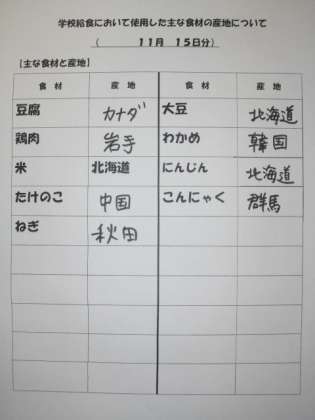 学校給食において使用した主な食材の産地について
( 11月 15日分)
【主な食材と産地】
食 材 産 地 食 材 産 地
豆腐 カナダ 大豆 北海道
鶏肉 岩手 わかめ 韓国
米 北海道 にんじん 北海道
たけのこ 中国 こんにゃく 群馬
ねぎ 秋田